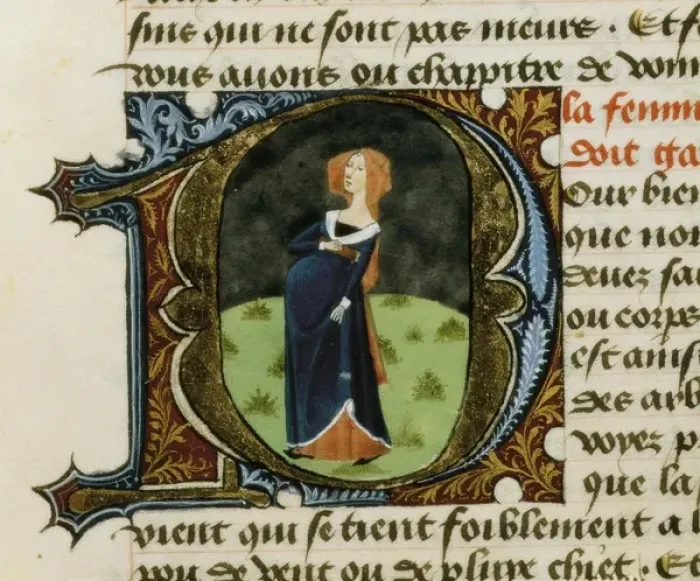 qui ne sont pas meurs . Et
vous auons ou chappitre de
la femm
doit ga
POur bien
que nou
deuez sa
ou corps
est ains
des arb
voyez p
que la
vient qui se tient foiblement a l
pou de vent ou de pluye chiet . Et